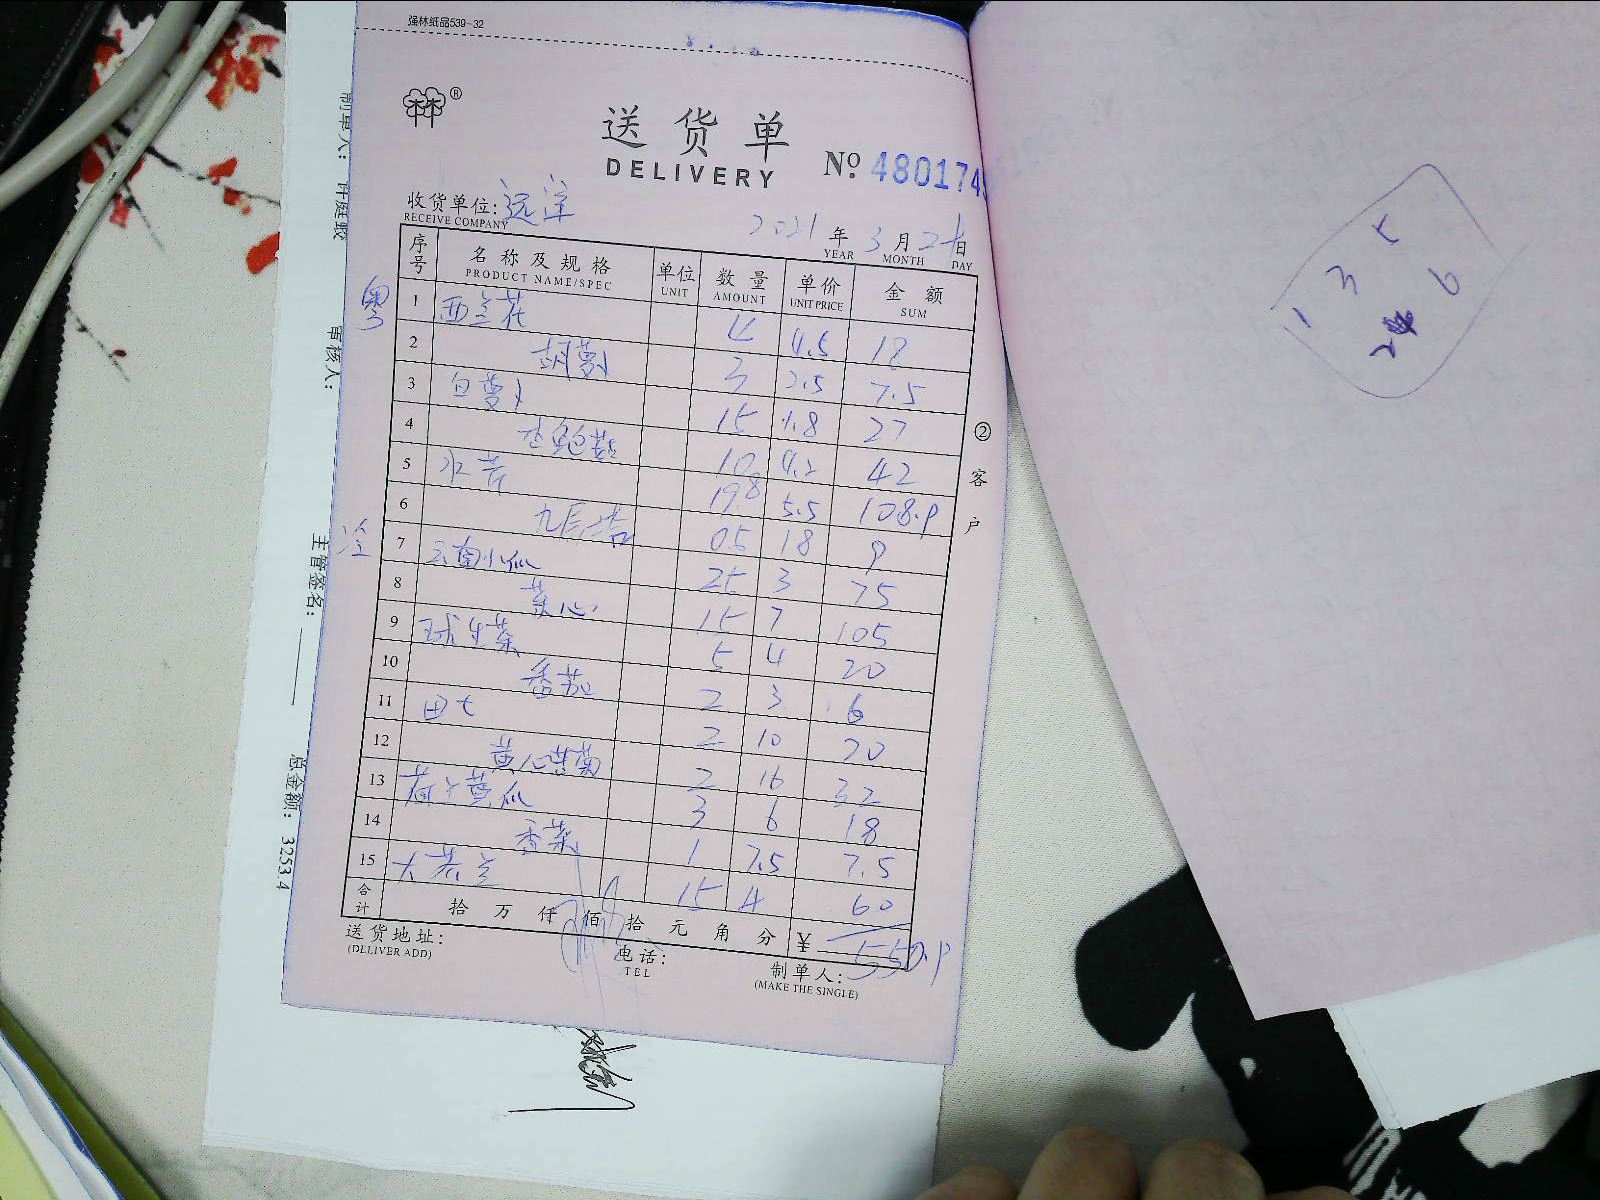 强林纸品539-32
林®
送货单
DELIVERY
No. 480174
收货单位:
RECEIVE COMPANY
2021 年 3 月 日
YEAR MONTH DAY
序号 名称及规格 单位 数量 单价 金额
PRODUCT NAME/SPEC UNIT AMOUNT UNIT PRICE SUM
粤
1 西兰花 4 4.5 18
2 胡萝卜 3 2.5 7.5
3 白萝卜 15 1.8 27
4 杏鲍菇 10 4.2 42
5 水芹 19.8 5.5 108.9
6 九层塔 0.5 18 9
7 云南小瓜 25 3 75
8 菜心 15 7 105
9 球生菜 5 4 20
10 番茄 2 3 6
11 田七 2 10 20
12 黄心菊 2 16 32
13 荷兰黄瓜 3 6 18
14 香菜 1 7.5 7.5
15 大芥兰 15 4 60
合计 拾 万 仟 佰 拾 元 角 分 ¥ 550.9
送货地址:
(DELIVER ADD)
电话:
TEL
制单人:
(MAKE THE SINGLE)
②客户
制单人:
审核人:
主管签名:
总金额: 3253.4
1 3 5
2 6